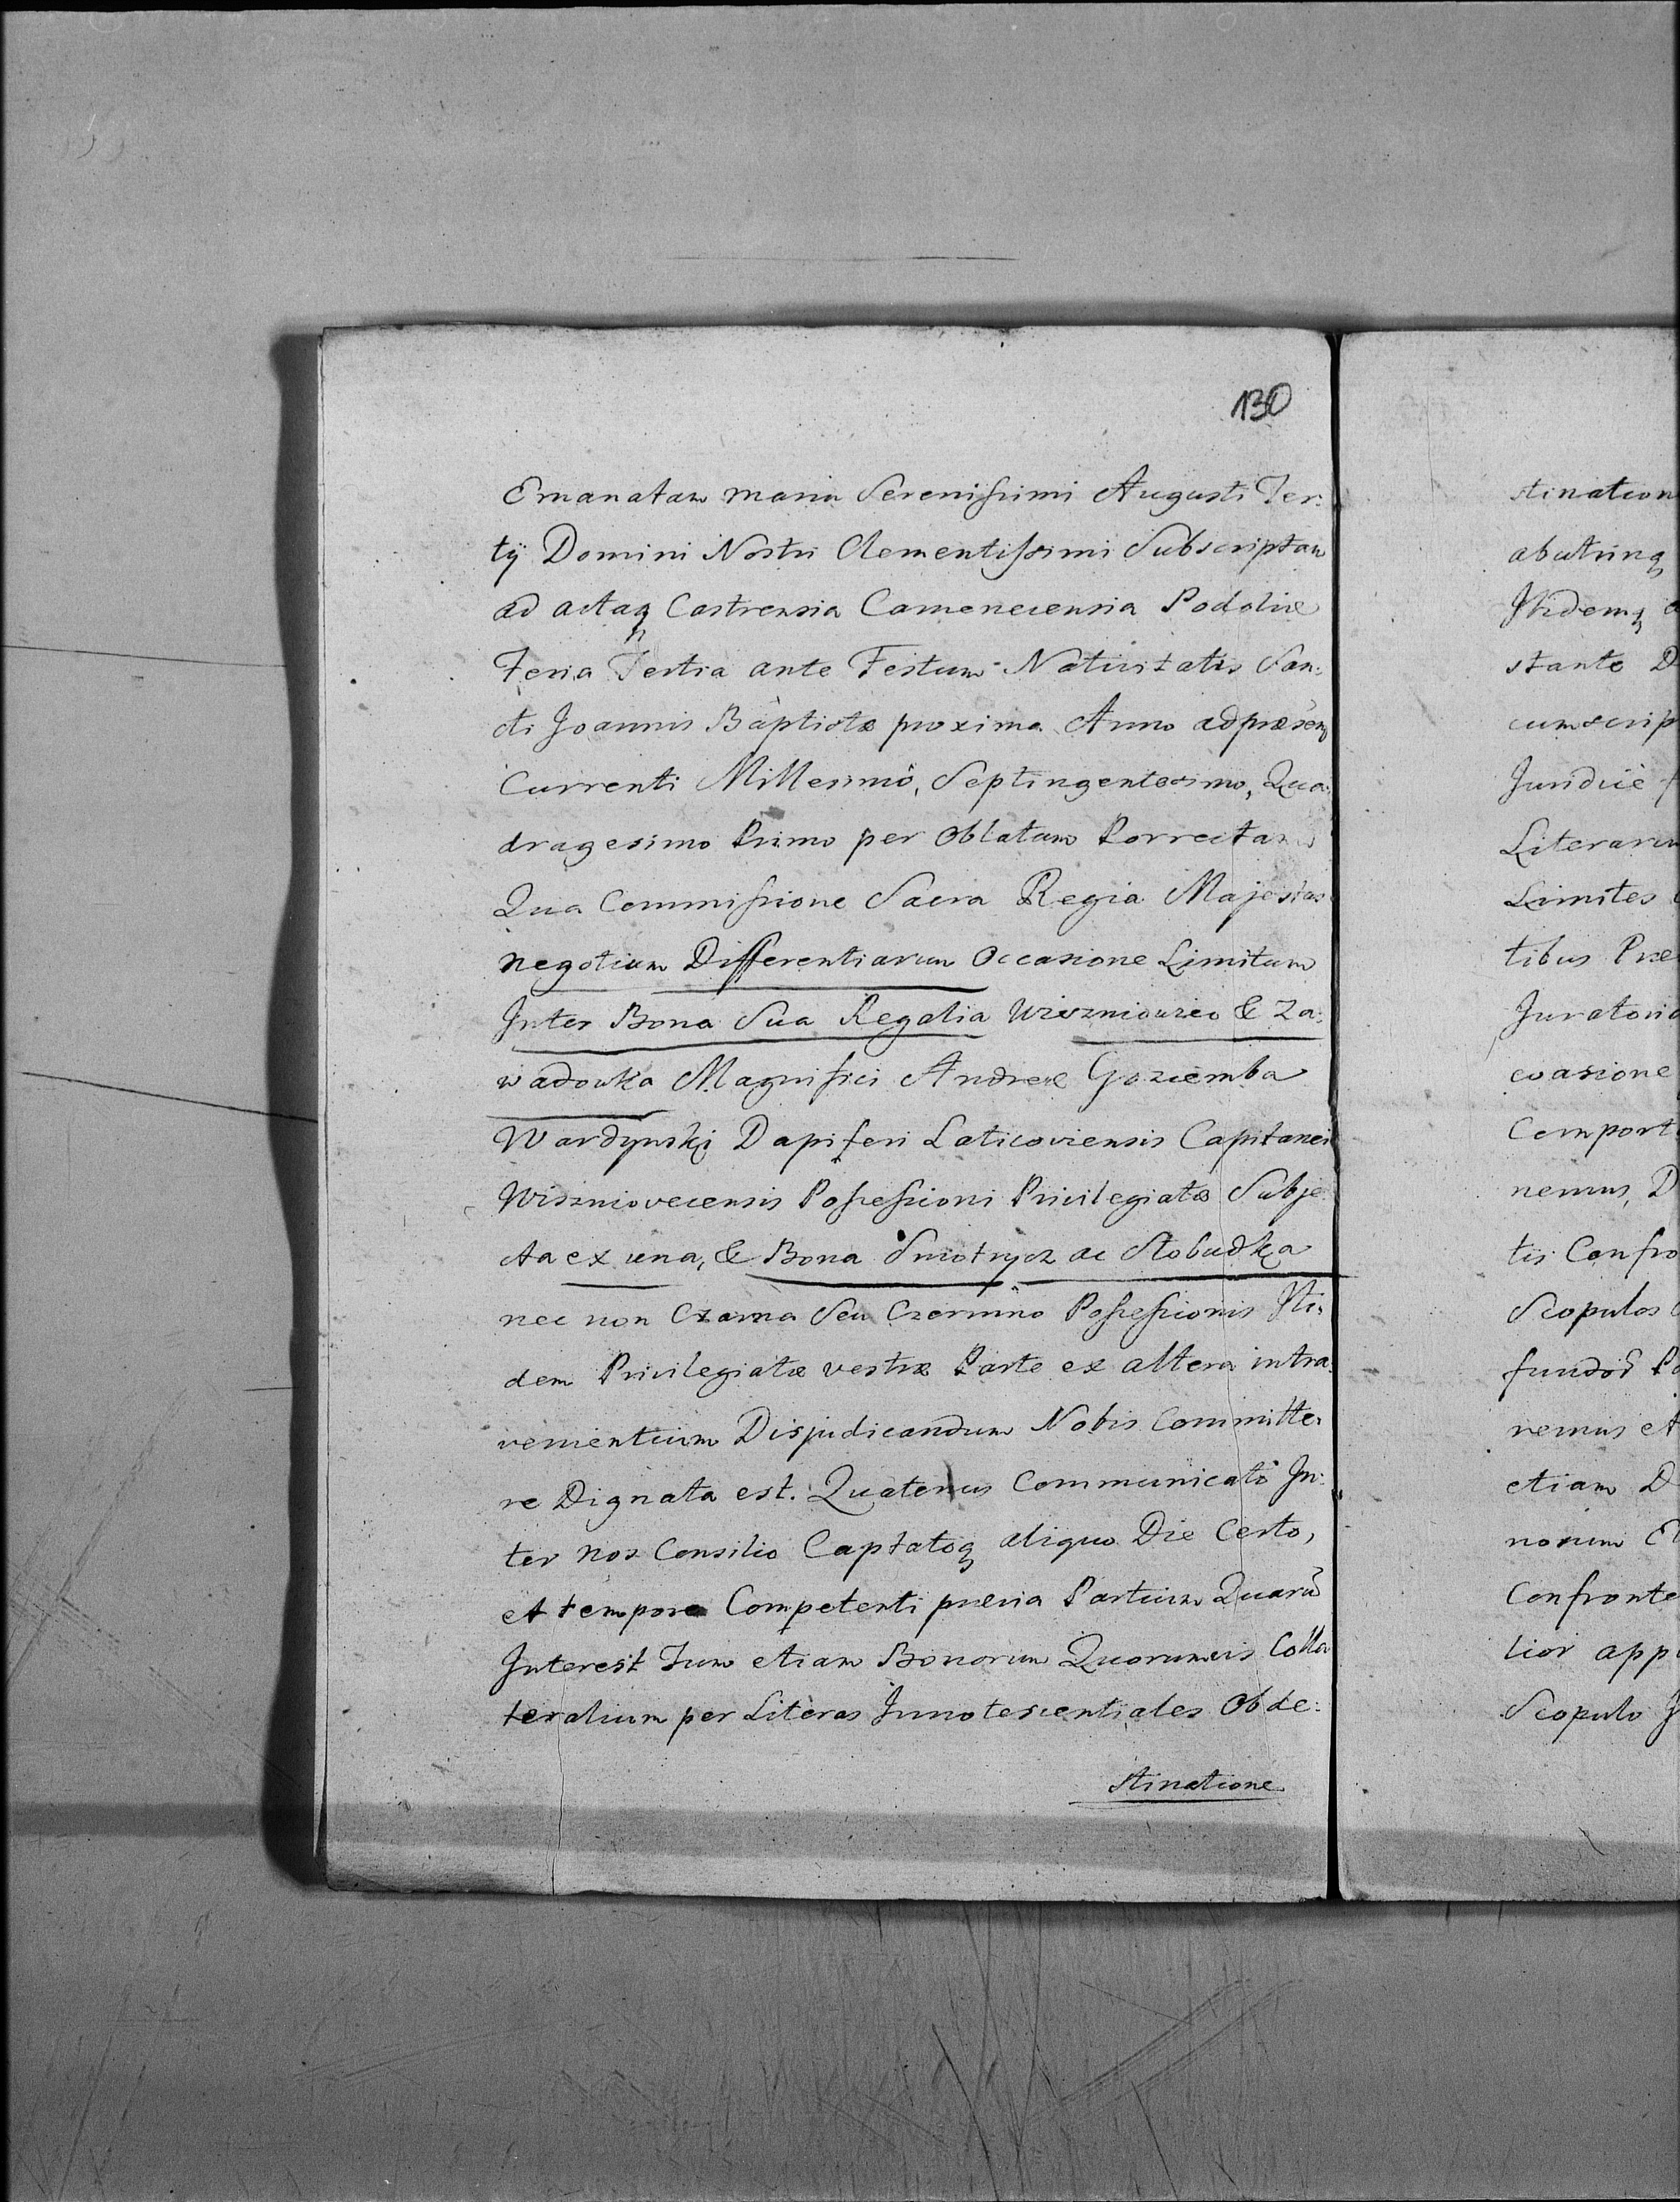 130
Emanatam manu Serenissimi Augusti Ter:
tij Domini Nostri Clementissimi Subscriptam
ad actaq Castrensia Camenecensia Podoliæ
Feria Tertia ante Festum Nativitatis San:
cti Joannis Baptistæ proxima Anno adpræsens
Currenti Millesimò, Septingentesimo, Qua:
dragesimo Primo per Oblatam Porrectam
Qua Commissione Sacra Regia Majestas
negotium Differentiarum Occasione Limitum
Inter Bona Sua Regalia Wiszniowiec & Za:
wadowka Magnifici Andreæ Goziemba
Wardynski Dapiferi Laticoviensis Capitanei
Wiszniovecensis Possessioni Privilegiatæ Subje
cta ex una, & Bona Smotrycz ac Slobudka
nec non Czarna Seu Czermno Possessionis Iti:
dem Privilegiatæ vestræ Parte ex altera intra:
venientium Disjudicandum Nobis Committe:
re Dignata est. Quatenus Communicatò In:
ter nos Consilio Captatoq aliquo Die Certo,
et tempore Competenti prævia Partium Quarũ
Interest Tum etiam Bonorum Quorumvis Colla
teralium per Literas Innotescentiales Obde:
stinatione
stination
abutrinq
Itidemq
stante D
cumscrip
Juridicè
Literarum
Limites
tibus Præ
Juratoria
evasione
Comport
nemus, D
tis Confro
Scopulos
fundos Po
nemus et
etiam D
norum Et
Confronte
lior app
Scopulo J